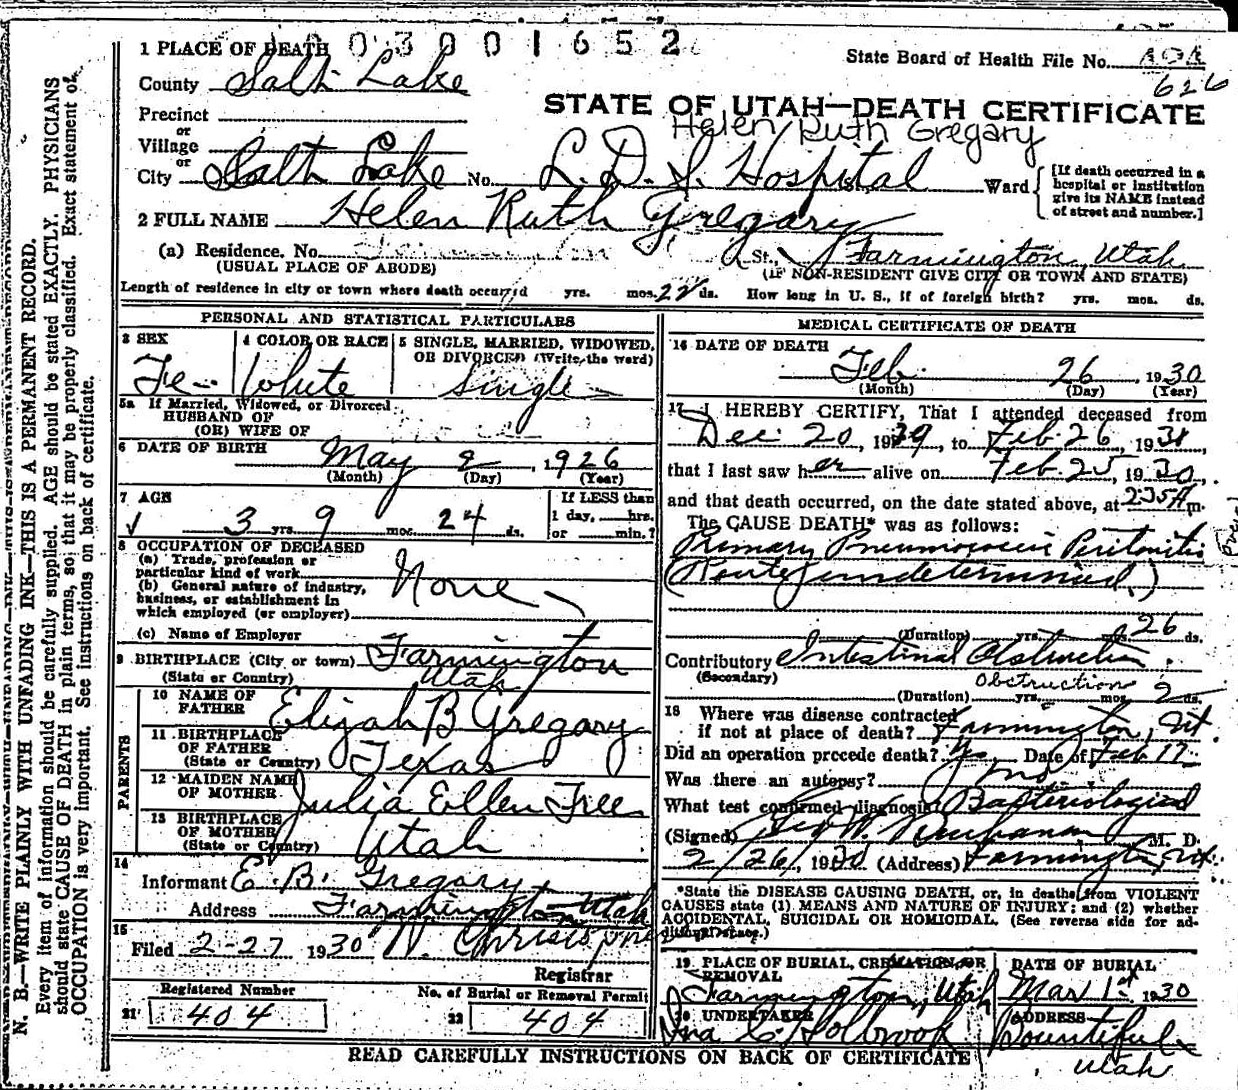 1 PLACE OF DEATH 0 3 0 0 1 6 5 2
State Board of Health File No.
626
County Salt Lake
STATE OF UTAH—DEATH CERTIFICATE
Precinct
Helen Ruth Gregary
or
Village
or
City Salt Lake No. L. D. S. Hospital Ward
[If death occurred in a hospital or institution give its NAME instead of street and number.]
2 FULL NAME Helen Ruth Gregary
(a) Residence. No. St., Farmington, Utah
(USUAL PLACE OF ABODE) (IF NON-RESIDENT GIVE CITY OR TOWN AND STATE)
Length of residence in city or town where death occurred yrs. mos. 22 ds. How long in U. S., if of foreign birth? yrs. mos. ds.
PERSONAL AND STATISTICAL PARTICULARS
3 SEX 4 COLOR OR RACE 5 SINGLE, MARRIED, WIDOWED, OR DIVORCED (Write the word)
Fe- White Single
5a If Married, Widowed, or Divorced
HUSBAND OF
(OR) WIFE OF
6 DATE OF BIRTH May 2, 1926
(Month) (Day) (Year)
7 AGE If LESS than
1 day, hrs.
or min.?
3 yrs. 9 mos. 24 ds.
8 OCCUPATION OF DECEASED
(a) Trade, profession or
particular kind of work
(b) General nature of industry,
business, or establishment in
which employed (or employer)
None
(c) Name of Employer
9 BIRTHPLACE (City or town) Farmington
(State or Country) Utah
PARENTS
10 NAME OF
FATHER Elijah B Gregary
11 BIRTHPLACE
OF FATHER
(State or Country) Texas
12 MAIDEN NAME
OF MOTHER Julia Ellen Free
13 BIRTHPLACE
OF MOTHER
(State or Country) Utah
14
Informant E. B. Gregary
Address Farmington Utah
15
Filed 2-27 1930
Registrar
Registered Number No. of Burial or Removal Permit
21 404 22 404
MEDICAL CERTIFICATE OF DEATH
16 DATE OF DEATH
Feb. 26, 1930
(Month) (Day) (Year)
17 I HEREBY CERTIFY, That I attended deceased from
Dec 20, 1929, to Feb 26, 1930,
that I last saw her alive on Feb. 25, 1930,
and that death occurred, on the date stated above, at 2:35 A m.
The CAUSE DEATH* was as follows:
Primary Pneumococcic Peritonitis
(Route undetermined.)
(Duration) yrs. 26 ds.
Contributory Intestinal Obstruction.
(Secondary) Obstruction
(Duration) yrs. mos. 2 ds.
18 Where was disease contracted
if not at place of death? Farmington, Ut.
Did an operation precede death? Yes Date of Feb 17
Was there an autopsy? no
What test confirmed diagnosis? Bacteriological
(Signed) Buchanan M. D.
2/26, 1930 (Address) Farmington, Ut.
*State the DISEASE CAUSING DEATH, or, in deaths from VIOLENT
CAUSES state (1) MEANS AND NATURE OF INJURY; and (2) whether
ACCIDENTAL, SUICIDAL OR HOMICIDAL. (See reverse side for ad-
ditional space.)
19 PLACE OF BURIAL, CREMATION, OR REMOVAL DATE OF BURIAL
Farmington, Utah Mar 1st 1930
20 UNDERTAKER ADDRESS
Ina C Holbrook Bountiful
Utah
READ CAREFULLY INSTRUCTIONS ON BACK OF CERTIFICATE
N. B.—WRITE PLAINLY WITH UNFADING INK—THIS IS A PERMANENT RECORD.
Every item of information should be carefully supplied. AGE should be stated EXACTLY. PHYSICIANS
should state CAUSE OF DEATH in plain terms, so that it may be properly classified. Exact statement of
OCCUPATION is very important. See instructions on back of certificate.